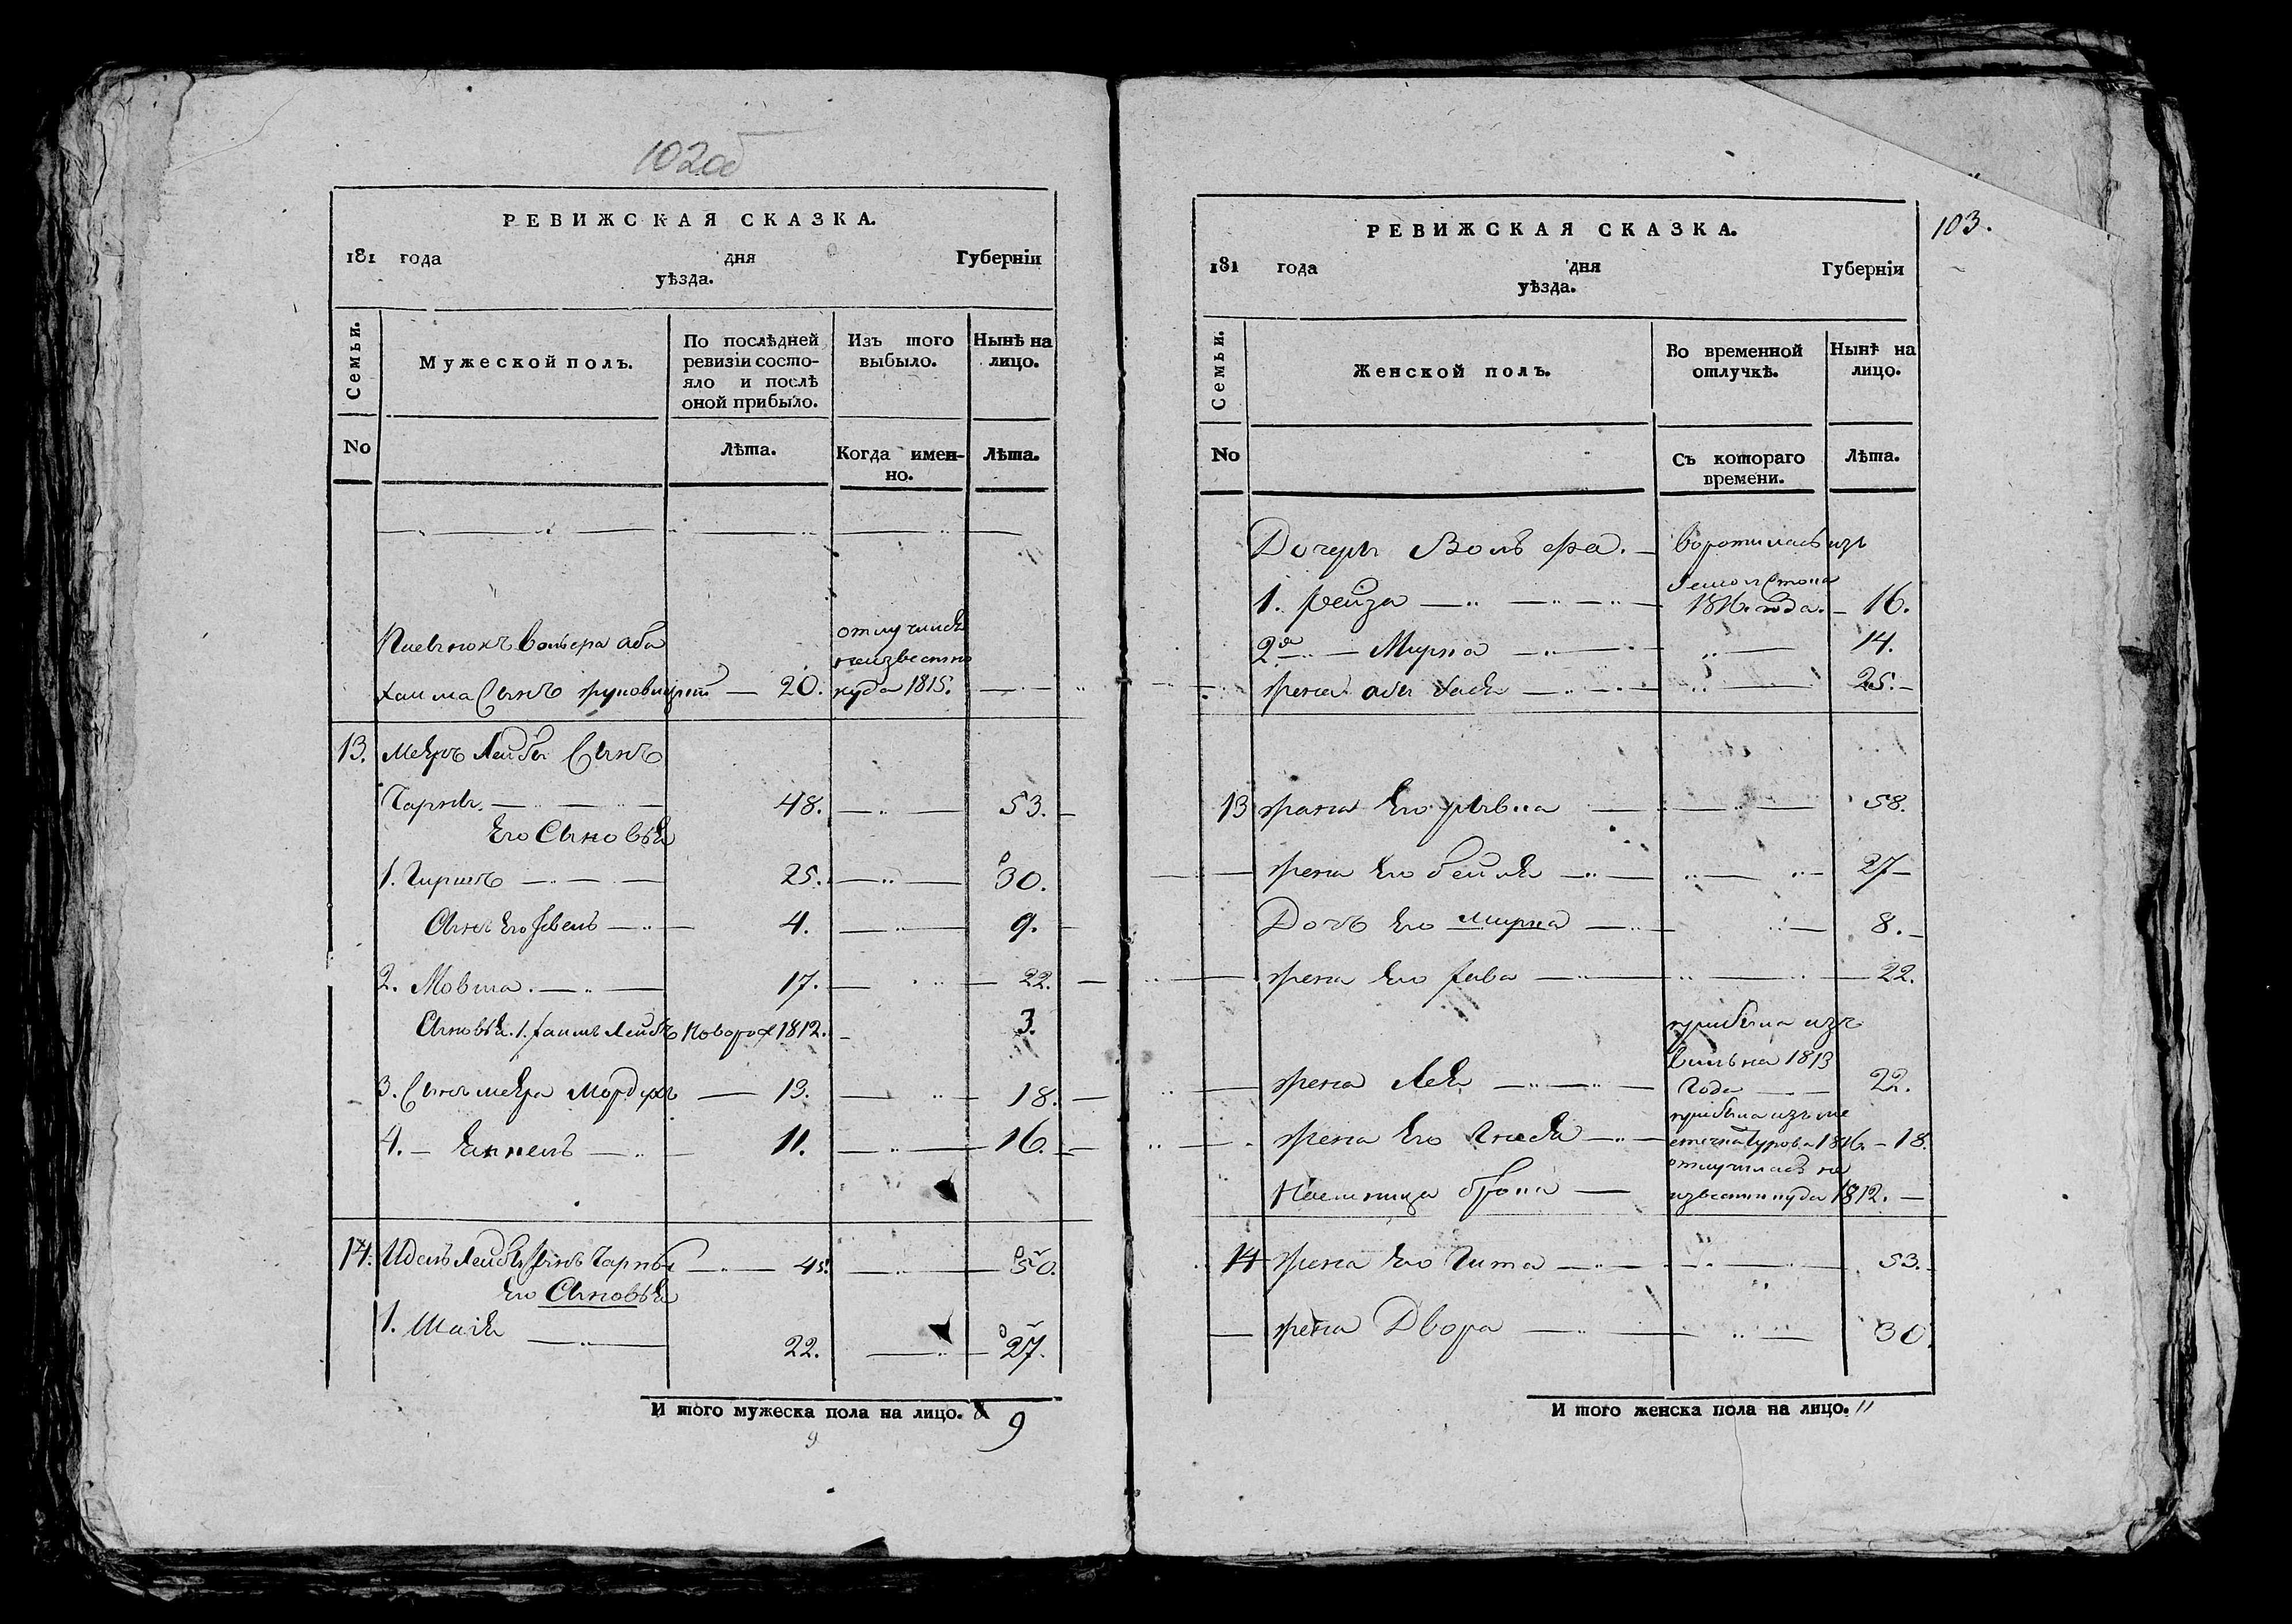 102об
РЕВИЖСКАЯ СКАЗКА.
181 года дня Губерніи
уѣзда.
Семьи.
Мужеской полъ.
По послѣдней ревизіи состо-
яло и послѣ
оной прибыло.
Изъ того
выбыло.
Нынѣ на
лицо.
No
Лѣта.
Когда имен-
но.
Лѣта.
отлучился
неизвестно
Хаима Сынъ 20. куда 1815.
13. Меєръ Лейбы Сынъ
Чарны. 48. 53.
Его Сыновья
1. Гиршъ 25. 30.
Сынъ Его 4. 9.
2. Мовша 17. 22.
Сыновья. 1. Хаимъ Лейба Новорож 1812. 3.
3. Сынъ Меєра Мордухъ 13. 18.
4. Янкель 11. 16.
14. Идель Лейбы Сынъ Чарны 45. 50.
Его Сыновья
1. Шая 22. 27.
И того мужеска пола на лицо. 9
9
103.
РЕВИЖСКАЯ СКАЗКА.
181 года дня Губерніи
уѣзда.
Семьи.
Женской полъ.
Во временной
отлучкѣ.
Нынѣ на
лицо.
No
Съ котораго
времени.
Лѣта.
Дочери Вольфа. воротилась изъ
1. Рейза 1816. года. 16.
2я Мирка 14.
жена абы Хася 25.
13 жена Его Ривка 58.
жена Его бейля 27
Дочь Его Мирка 8.
жена Его 22.
прибыла изъ
Вильна 1813
жена Лея Года 22.
прибыла изъ ме
жена Его стечка Турова 1816. 18.
отлучилась не
Наемница брона известно куда 1812.
14 жена Его Гита 53.
жена Двора 30
И того женска пола на лицо. 11